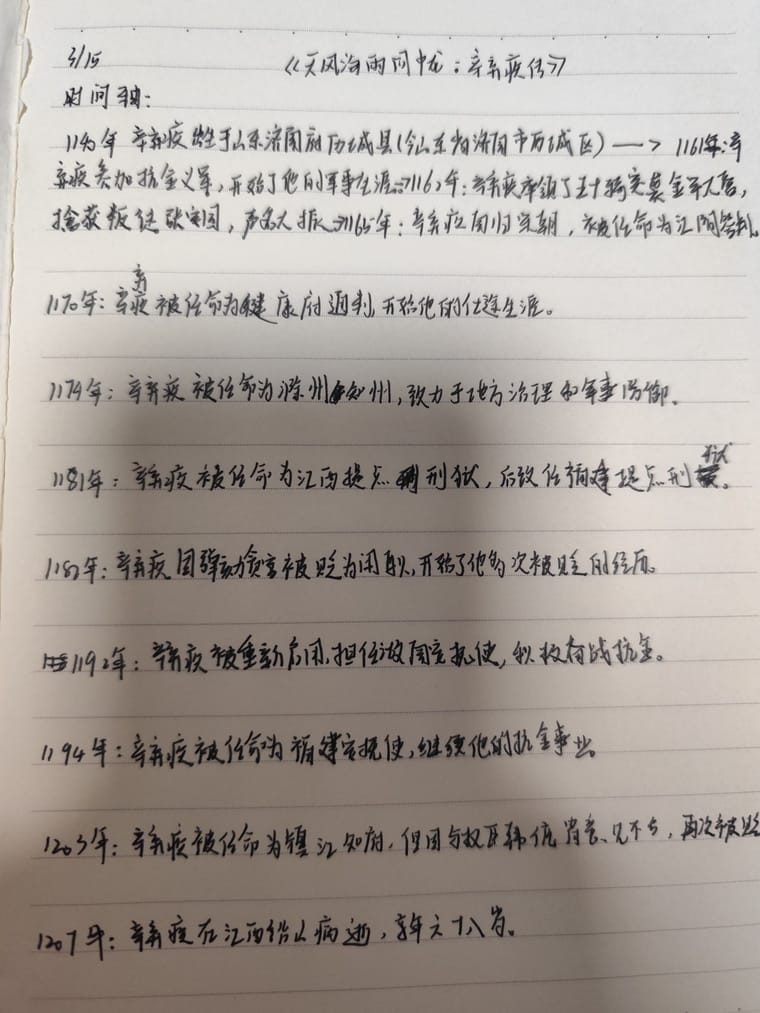 3/15 《天风海雨问中龙：辛弃疾传》
时间轴：
1140年 辛弃疾出生于山东济南府历城县(今山东省济南市历城区) —→ 1161年：辛
弃疾参加抗金义军，开始了他的军事生涯⇒1162年：辛弃疾率领了五十骑突袭金军大营，
擒获叛徒张安国，声名大振⇒1165年：辛弃疾南归宋朝，被任命为江阴签判。
1170年：辛弃疾被任命为建康府通判，开始他的仕途生涯。
1174年：辛弃疾被任命为滁州知州，致力于地方治理和军事防御。
1181年：辛弃疾被任命为江西提点刑狱，后改任福建提点刑狱。
1182年：辛弃疾因弹劾贪官被贬为闲职，开始了他多次被贬的经历。
1192年：辛弃疾被重新启用，担任湖南安抚使，积极备战抗金。
1194年：辛弃疾被任命为福建安抚使，继续他的抗金事业。
1203年：辛弃疾被任命为镇江知府，但因与权臣韩侂胄意见不占，再次被贬
1207年：辛弃疾在江西铅山病逝，享年六十八岁。